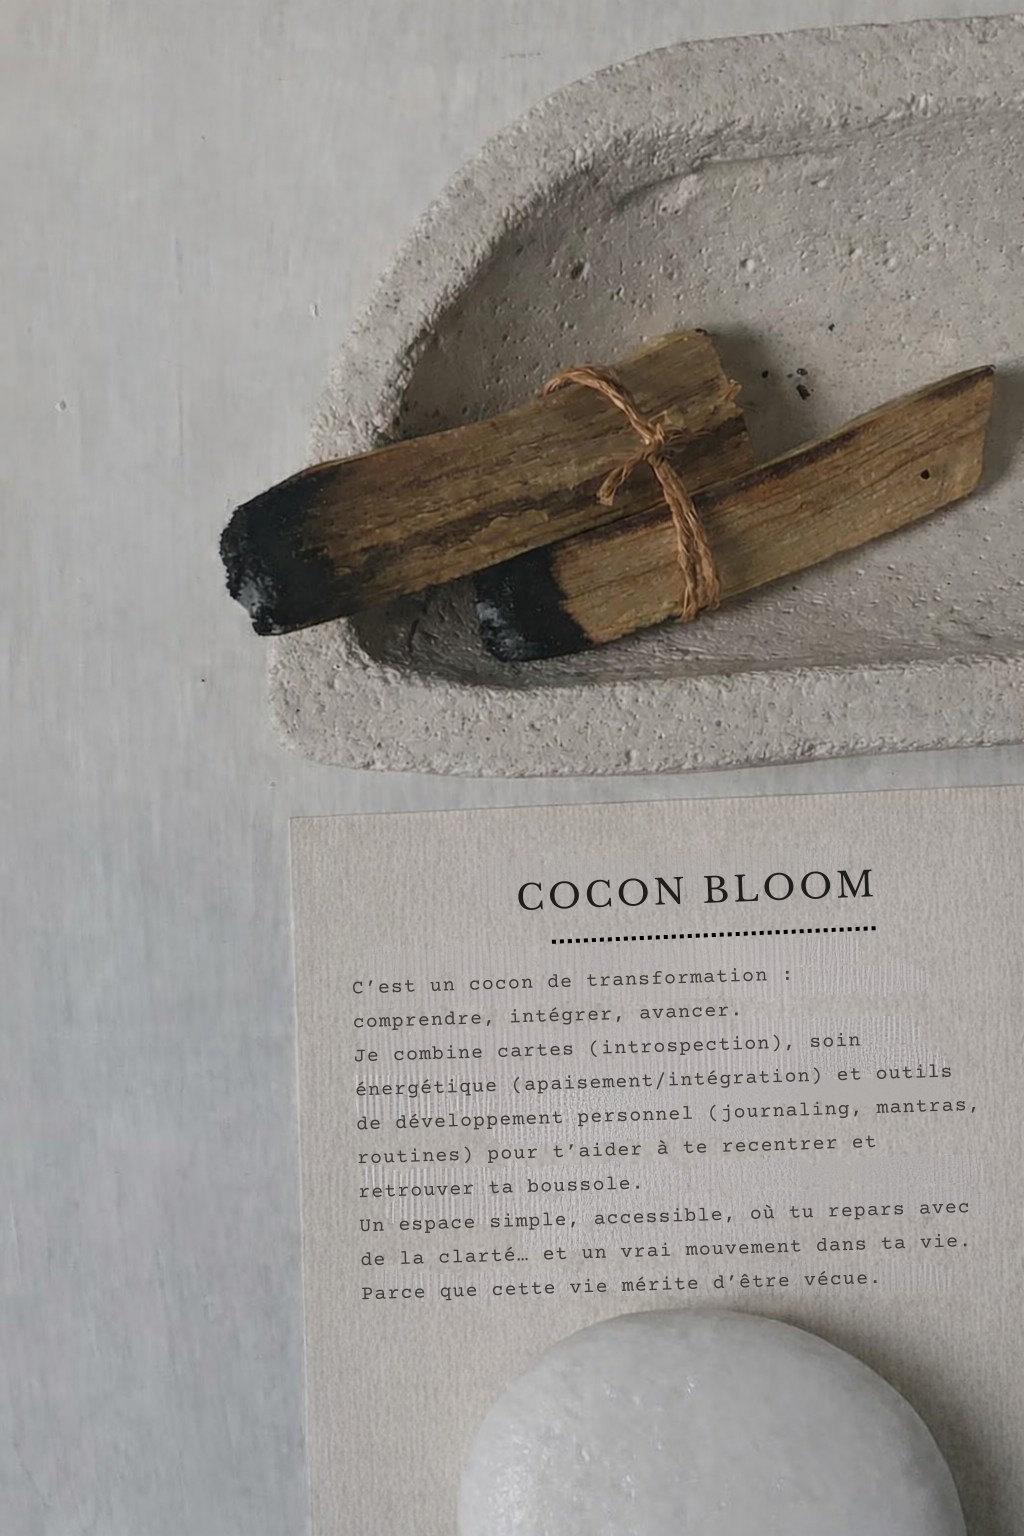 COCON BLOOM
C’est un cocon de transformation :
comprendre, intégrer, avancer.
Je combine cartes (introspection), soin
énergétique (apaisement/intégration) et outils
de développement personnel (journaling, mantras,
routines) pour t’aider à te recentrer et
retrouver ta boussole.
Un espace simple, accessible, où tu repars avec
de la clarté… et un vrai mouvement dans ta vie.
Parce que cette vie mérite d’être vécue.